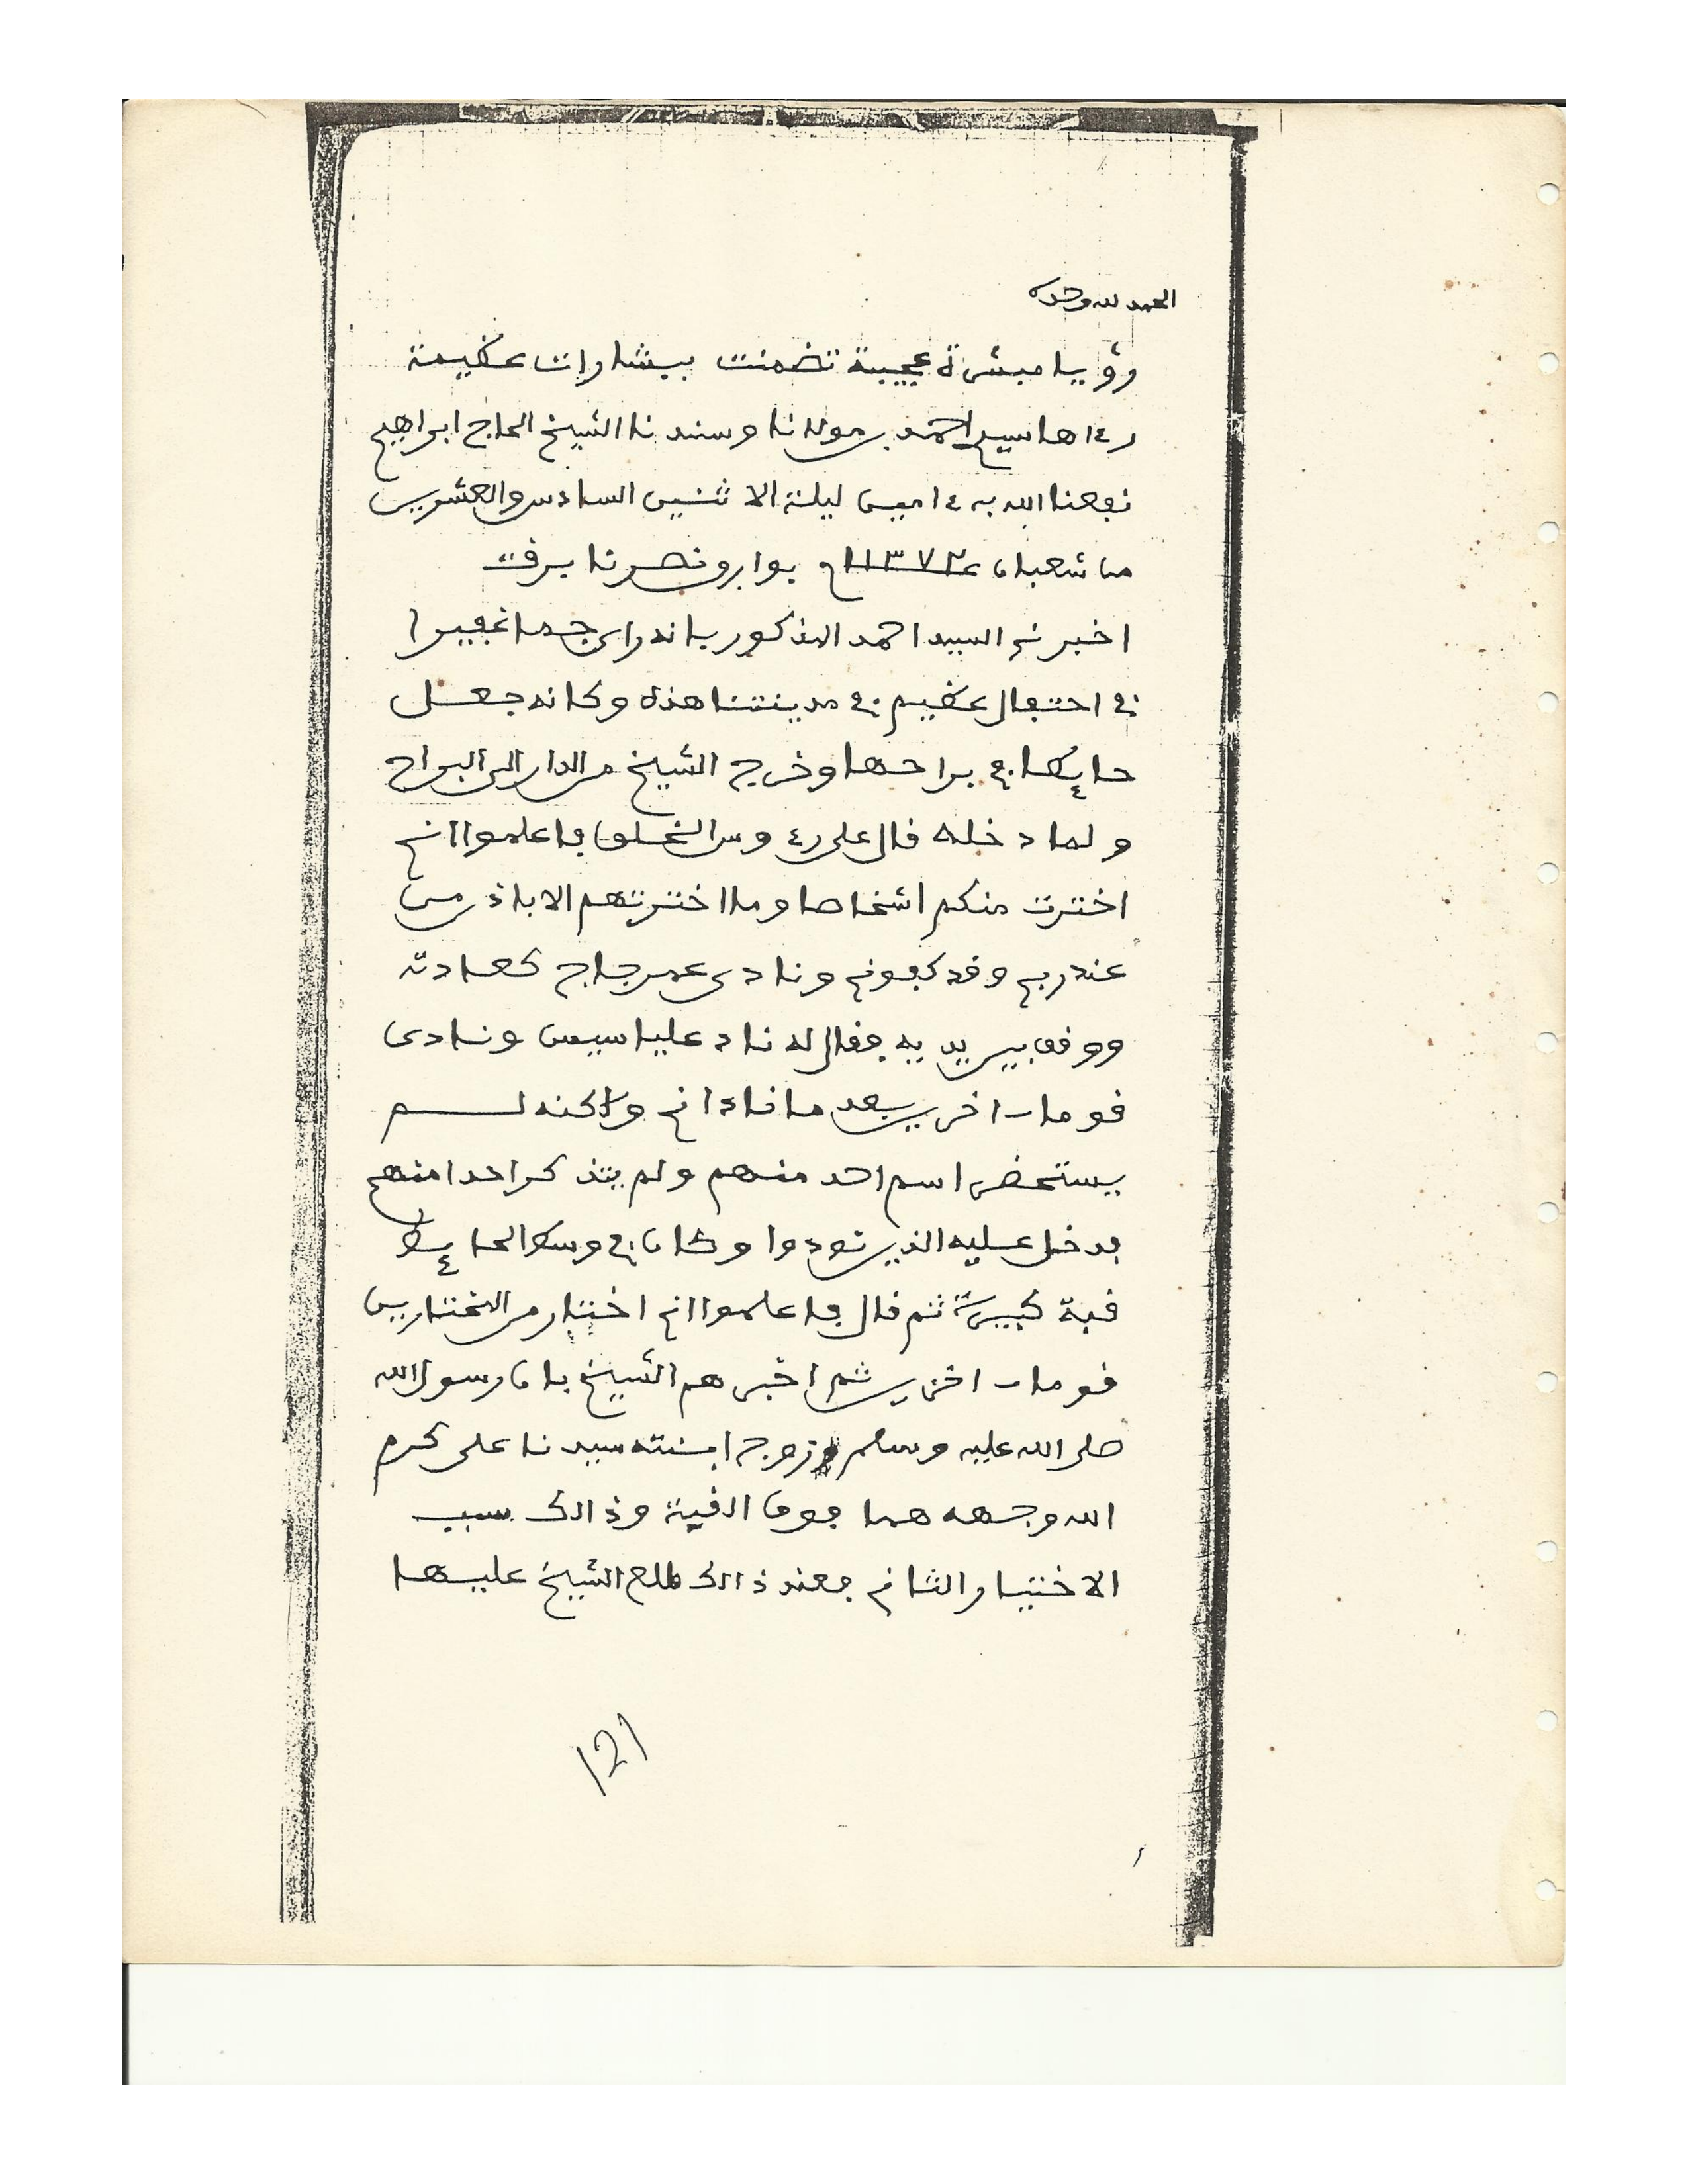 الحمد لله وحده
رؤيا مبشرة عجيبة تضمنت ببشارات عظيمة
رءاها سيد احمد بن مولانا وسندنا الشيخ الحاج ابراهيم
نفعنا الله به ءامين ليلة الاثنين السادس والعشرين
من شعبان ١٣٧٢
اخبرني السيد احمد المذكور بانه راى جما غفيرا
في احتفال عظيم في مدينتنا هذه وكانه جعل
حايطا في براحها وخرج الشيخ من الدار الى البراح
ولما دخله قال على رءوس الخلق فاعلموا اني
اخترت منكم اشخاصا وما اخترتهم الا باذن من
عند ربي وقد كفوني ونادى عمر جاج كعادته
ووقف بين يديه فقال له ناد عليا سيس ونادى
قوما ـ اخرين بعد ما ناداني ولاكنه لم
يستحضر اسم احد منهم ولم يتذكر احدا منهم
فدخل عليه الذين نودوا وكان في وسط الحايط
قبة كبيرة ثم قال فاعلموا اني اختار من المختارين
قوما ـ اخرين ثم اخبرهم الشيخ بان رسول الله
صلى الله عليه وسلم وزوج ابنته سيدنا على كرم
الله وجهه هما فوق القبة وذالك سبب
الاختيار الثاني فعند ذالك طلع الشيخ عليها
121